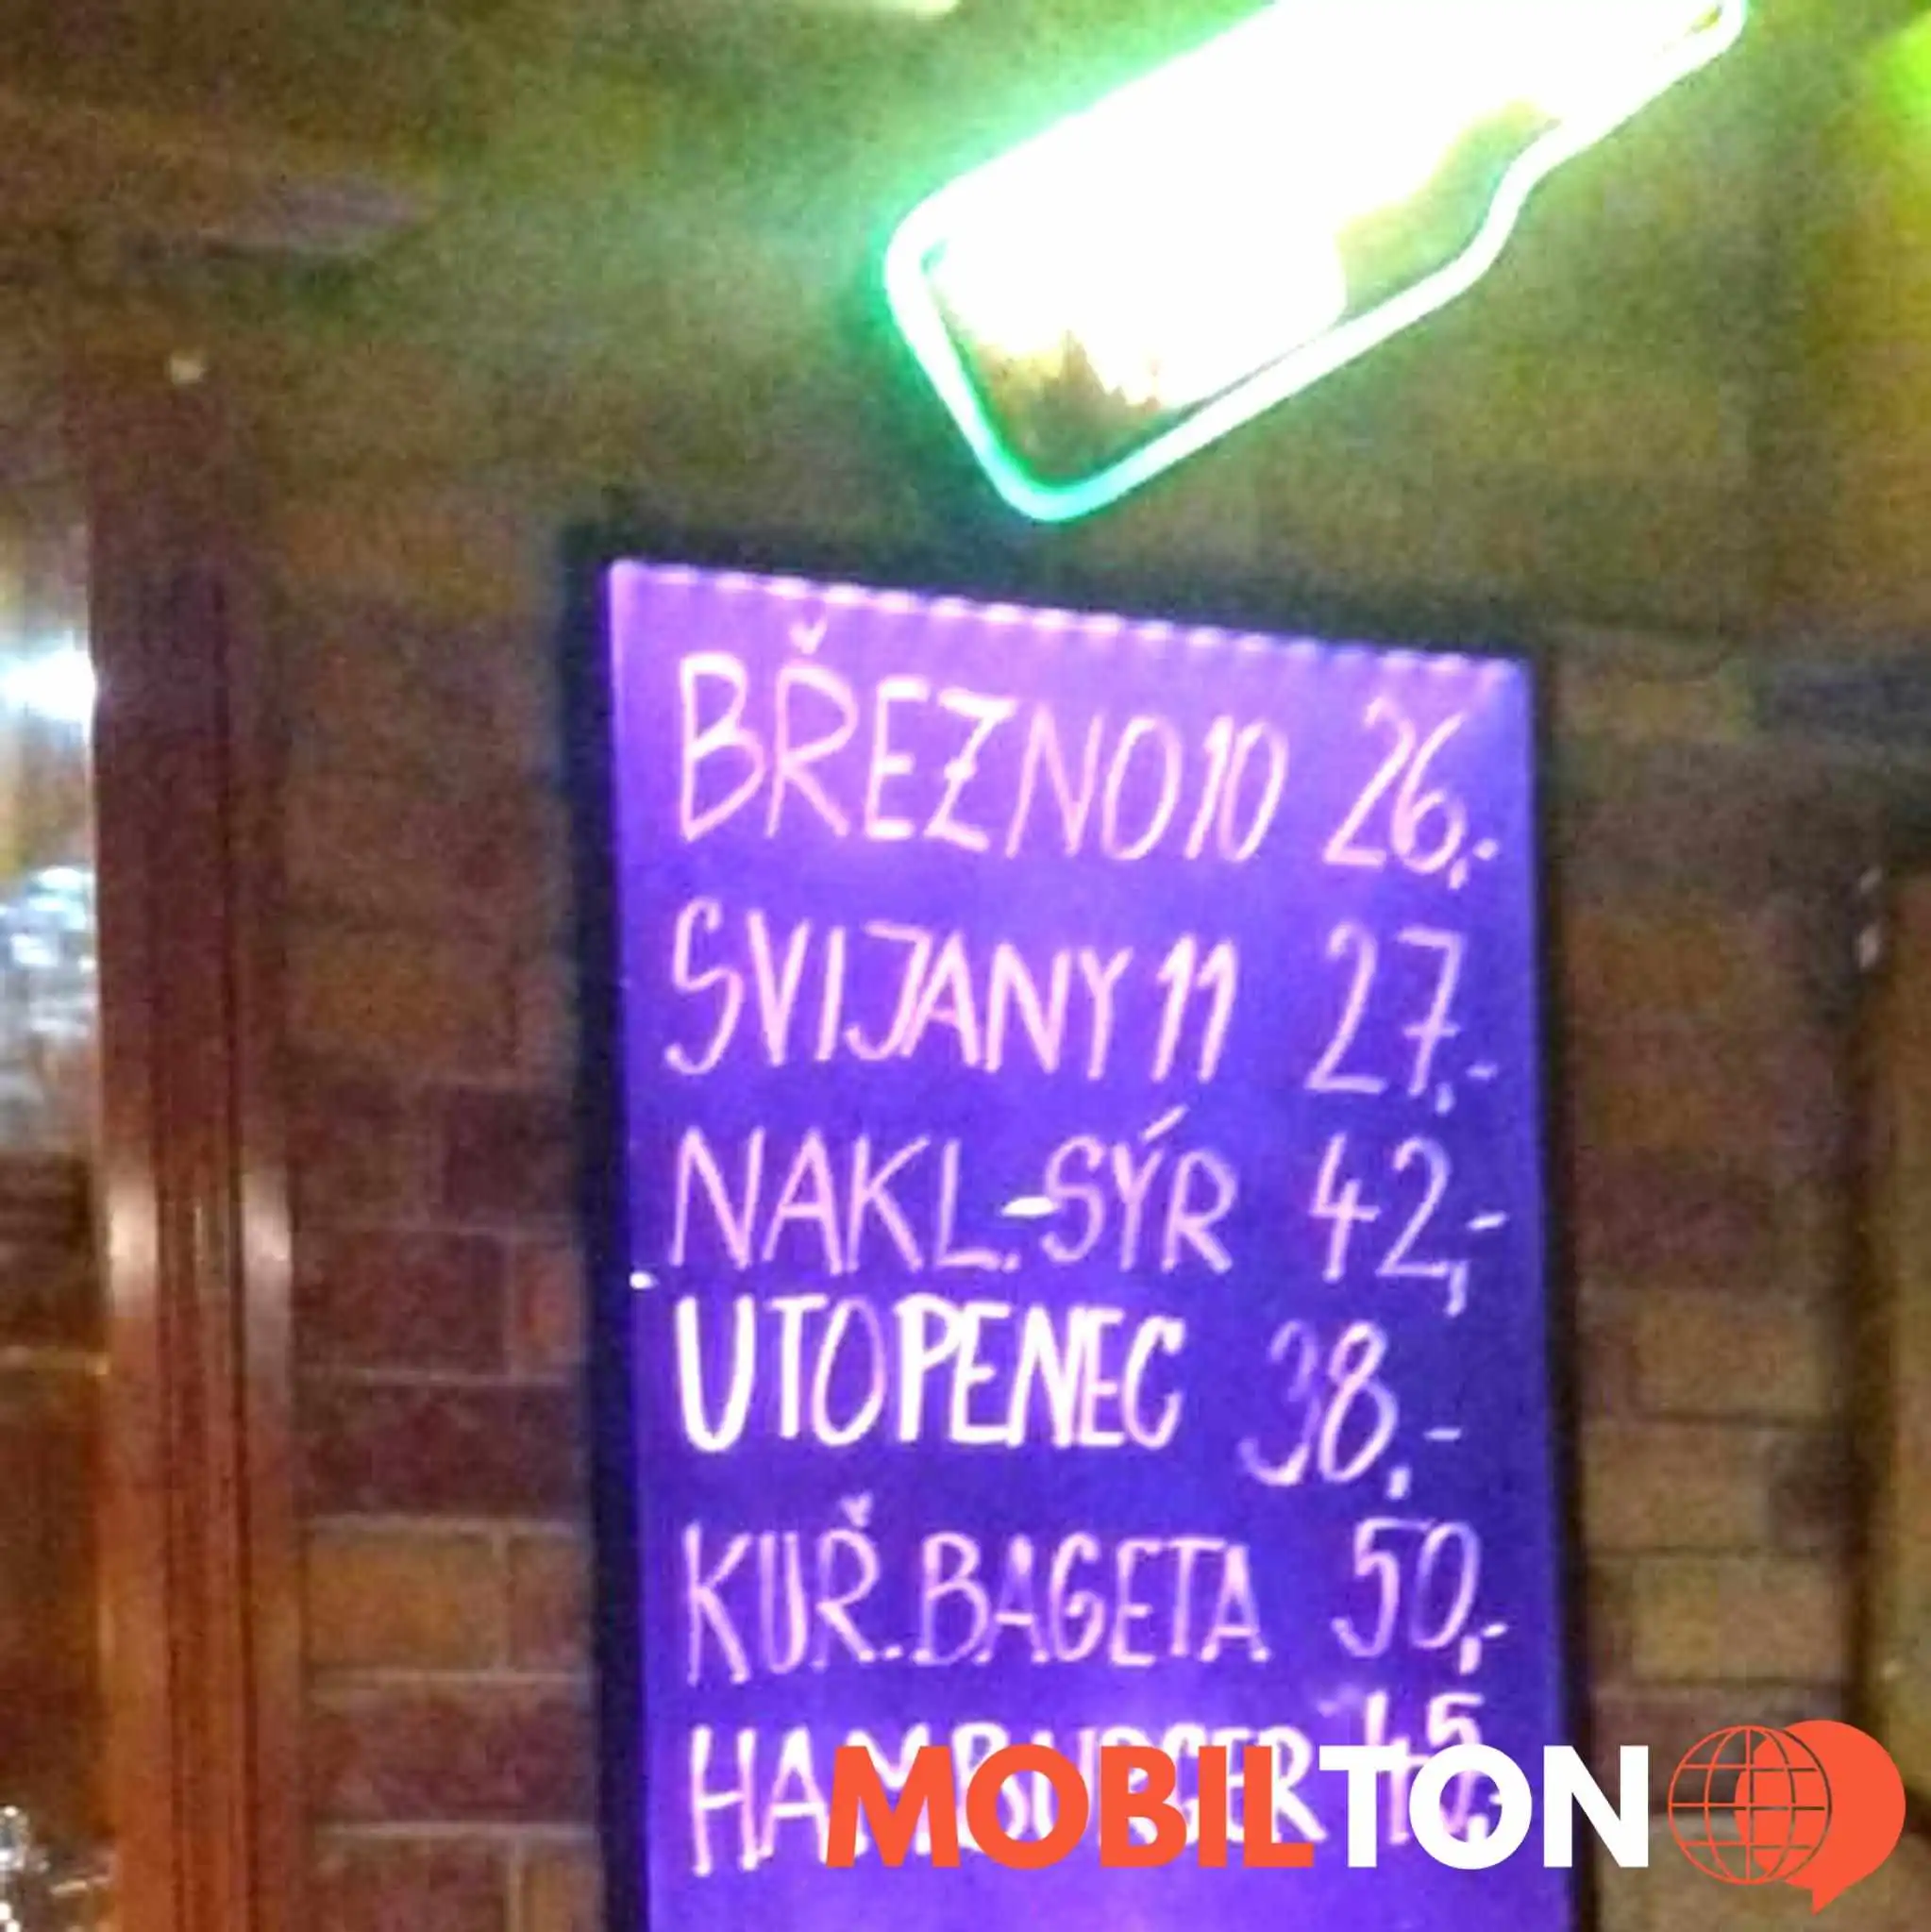 BŘEZNO 10 26,-
SVIJANY 11 27,-
NAKL.-SÝR 42,-
UTOPENEC 38,-
KUŘ. BAGETA 50,-
HAMBURGER
MOBILTON